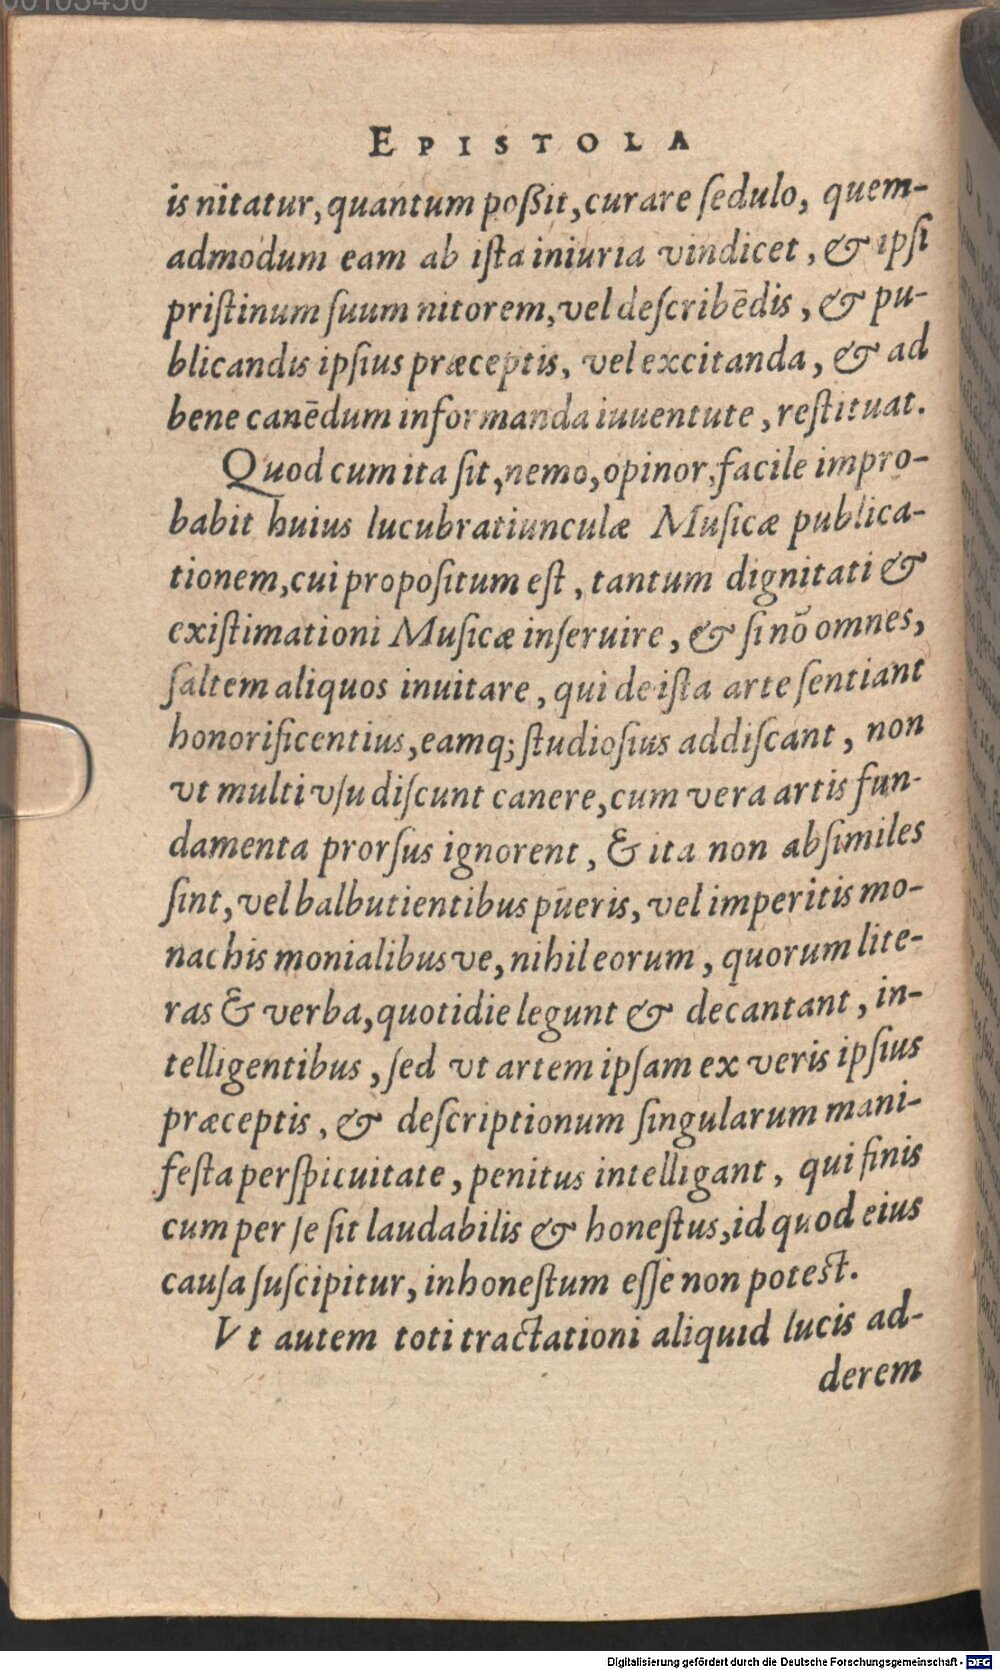 EPISTOLA
is nitatur, quantum poßit, curare ſedulo, quem-
admodum eam ab iſta iniuria vindicet, & ipſi
priſtinum ſuum nitorem, vel deſcribēdis, & pu-
blicandis ipſius præceptis, vel excitanda, & ad
bene canēdum informanda iuuentute, reſtituat.
Quod cum ita ſit, nemo, opinor, facile impro-
babit huius lucubratiunculæ Muſicæ publica-
tionem, cui propoſitum eſt, tantum dignitati &
exiſtimationi Muſicæ inſeruire, & ſi nō omnes,
ſaltem aliquos inuitare, qui de iſta arte ſentiant
honorificentius, eamq; ſtudioſius addiſcant, non
vt multi vſu diſcunt canere, cum vera artis fun-
damenta prorſus ignorent, & ita non abſimiles
ſint, vel balbutientibus pueris, vel imperitis mo-
nachis monialibusve, nihil eorum, quorum lite-
ras & verba, quotidie legunt & decantant, in-
telligentibus, ſed vt artem ipſam ex veris ipſius
præceptis, & deſcriptionum ſingularum mani-
feſta perſpicuitate, penitus intelligant, qui finis
cum per ſe ſit laudabilis & honeſtus, id quod eius
cauſa ſuſcipitur, inhoneſtum eſſe non poteſt.
Vt autem toti tractationi aliquid lucis ad-
derem
Digitalisierung gefördert durch die Deutsche Forschungsgemeinschaft - DFG